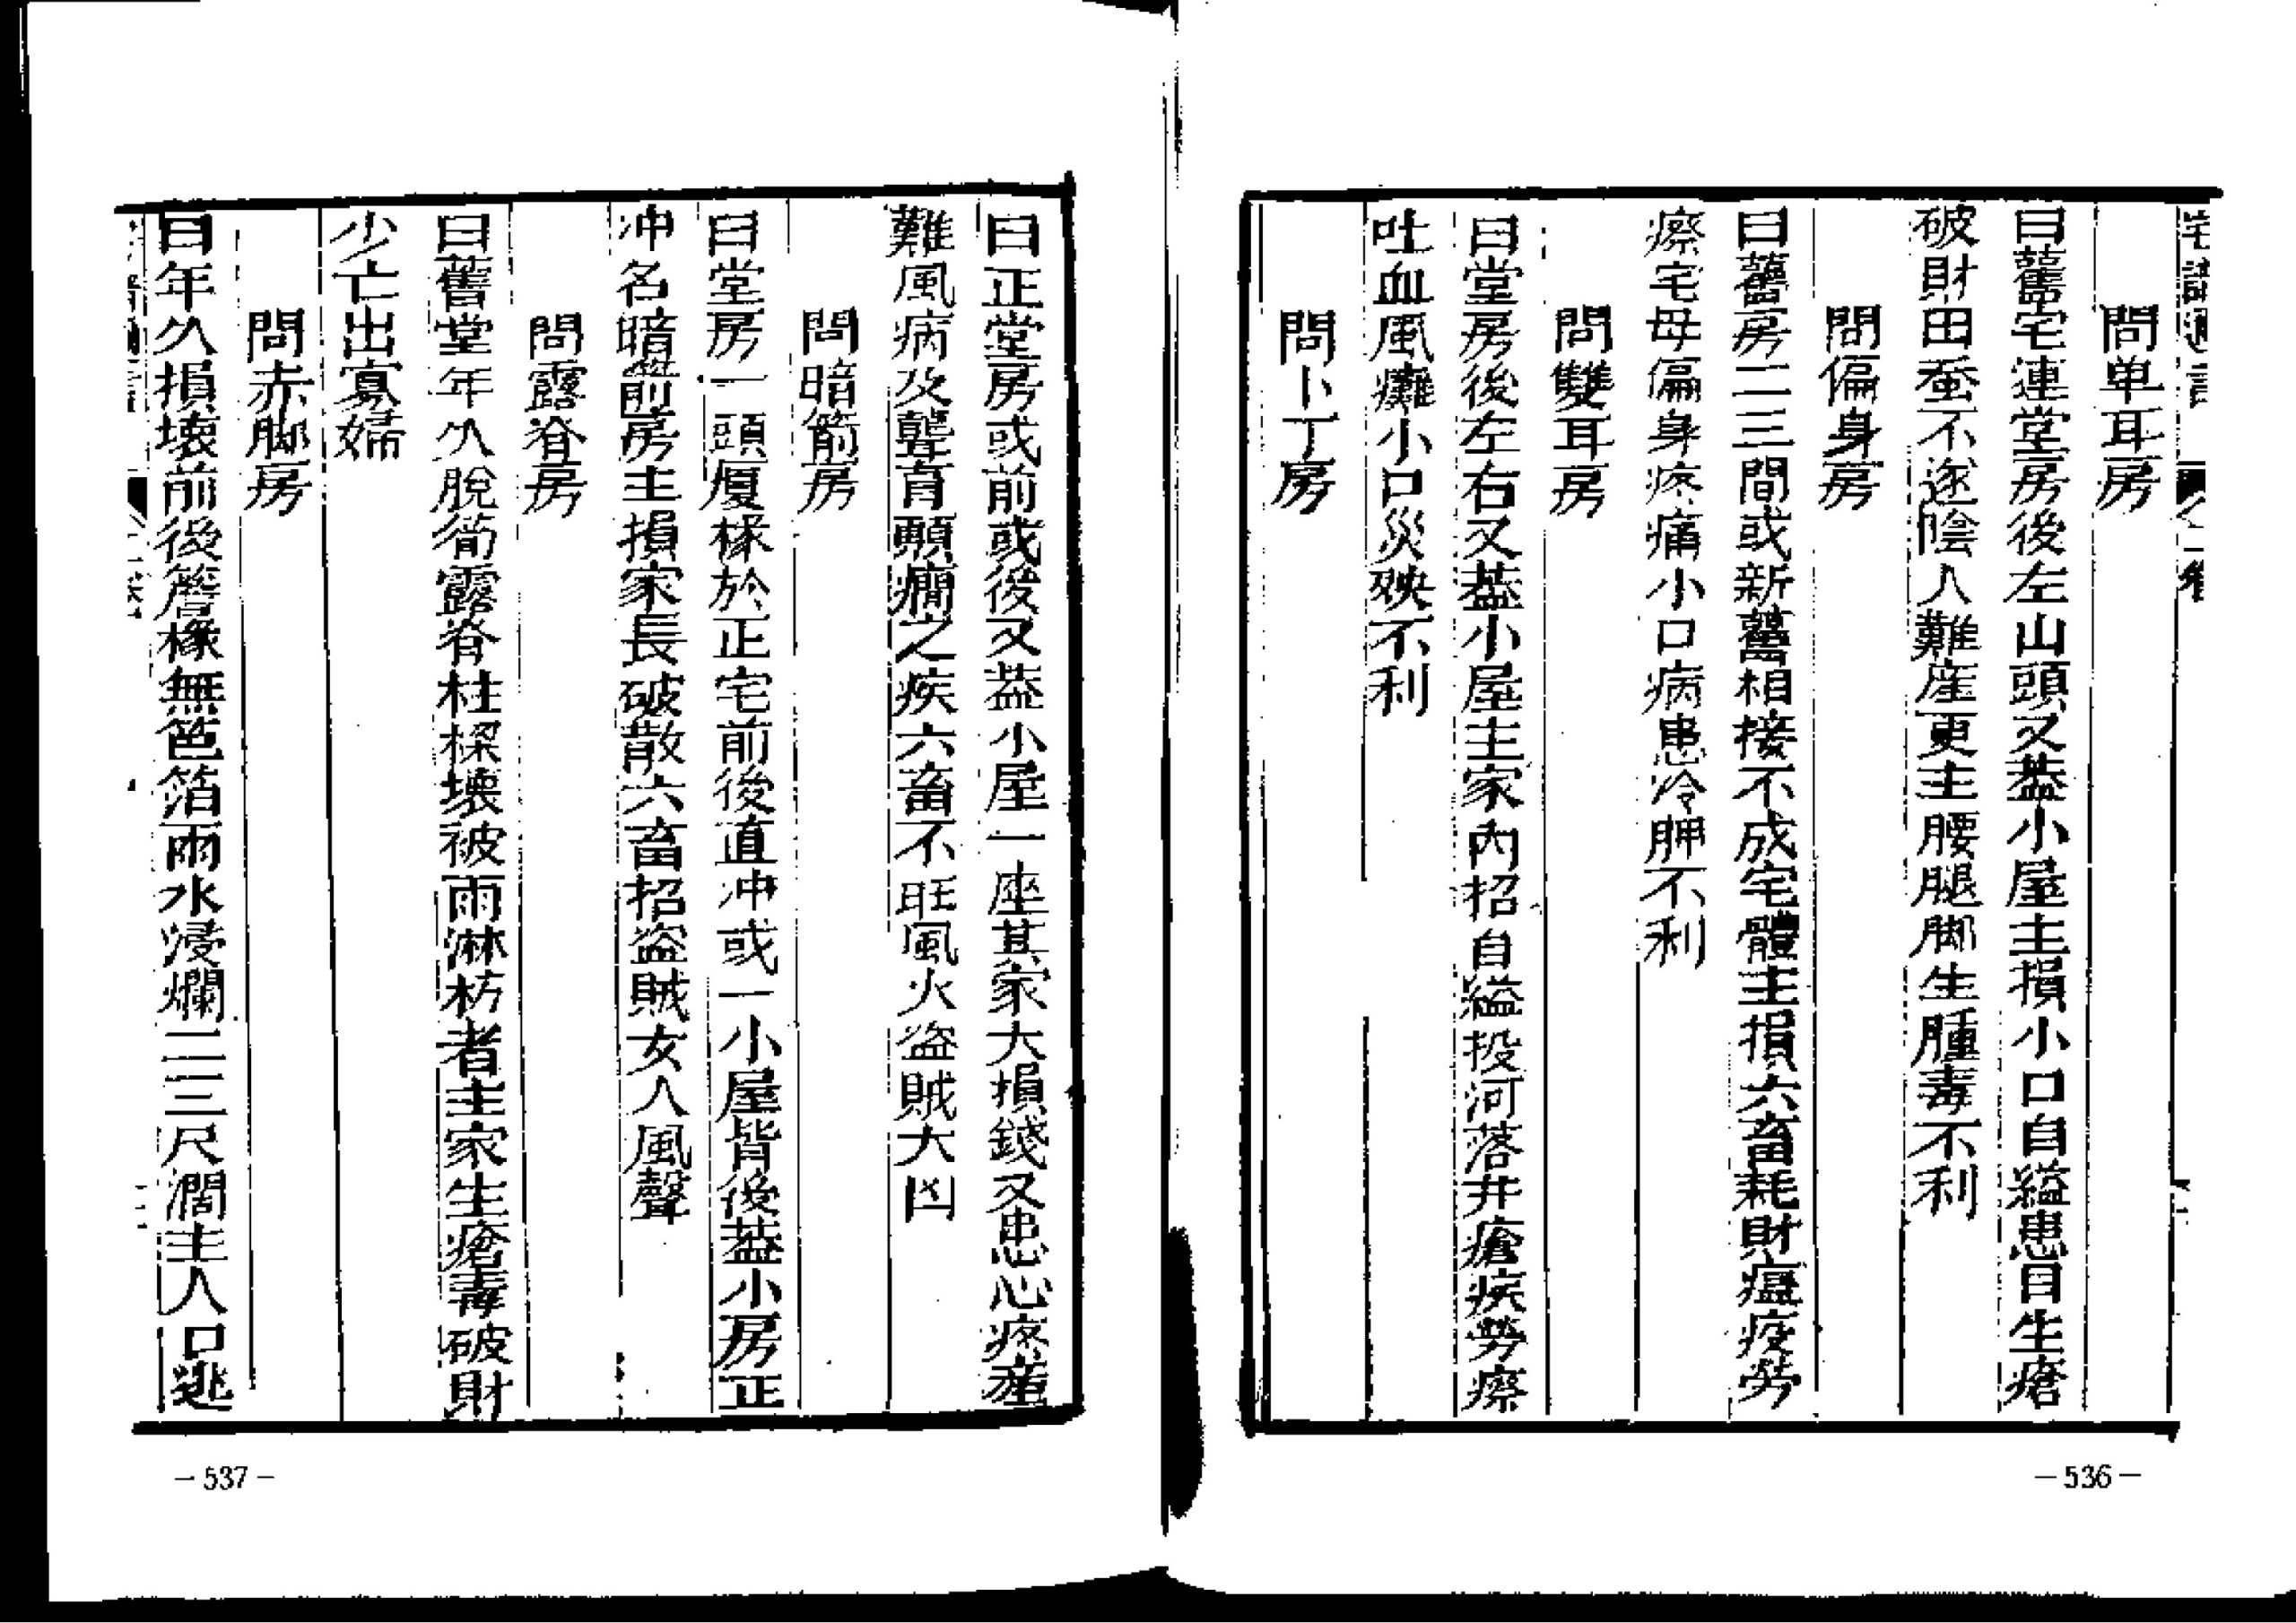 問单耳房
曰舊宅連堂房後左山頭又葢小屋主損小口自縊患目生瘡
破財田蚕不遂陰人難産更主腰腿脚生腫毒不利
問偏身房
曰舊房二三間或新舊相接不成宅體主損六畜耗財瘟疫勞
瘵宅母偏身疼痛小口病患冷脾不利
問雙耳房
曰堂房後左右又葢小屋主家内招自縊投河落井瘡疾勞瘵
吐血風癱小口災殃不利
問卜丁房
—536—
曰正堂房或前或後又葢小屋一座其家大損錢又患心疼產
難風病及聾盲顛癇之疾六畜不旺風火盗賊大凶
問暗箭房
曰堂房一頭廈椽於正宅前後直冲或一小屋背後葢小房正
冲名暗箭房主損家長破散六畜招盗賊女人風聲
問露脊房
曰舊堂年久脫䈥露脊柱樑壞被雨淋朽者主家生瘡毒破財
少亡出寡婦
問赤脚房
曰年久損壊前後簷椽無笆箔雨水浸爛二三尺濶主人口逃
—537—